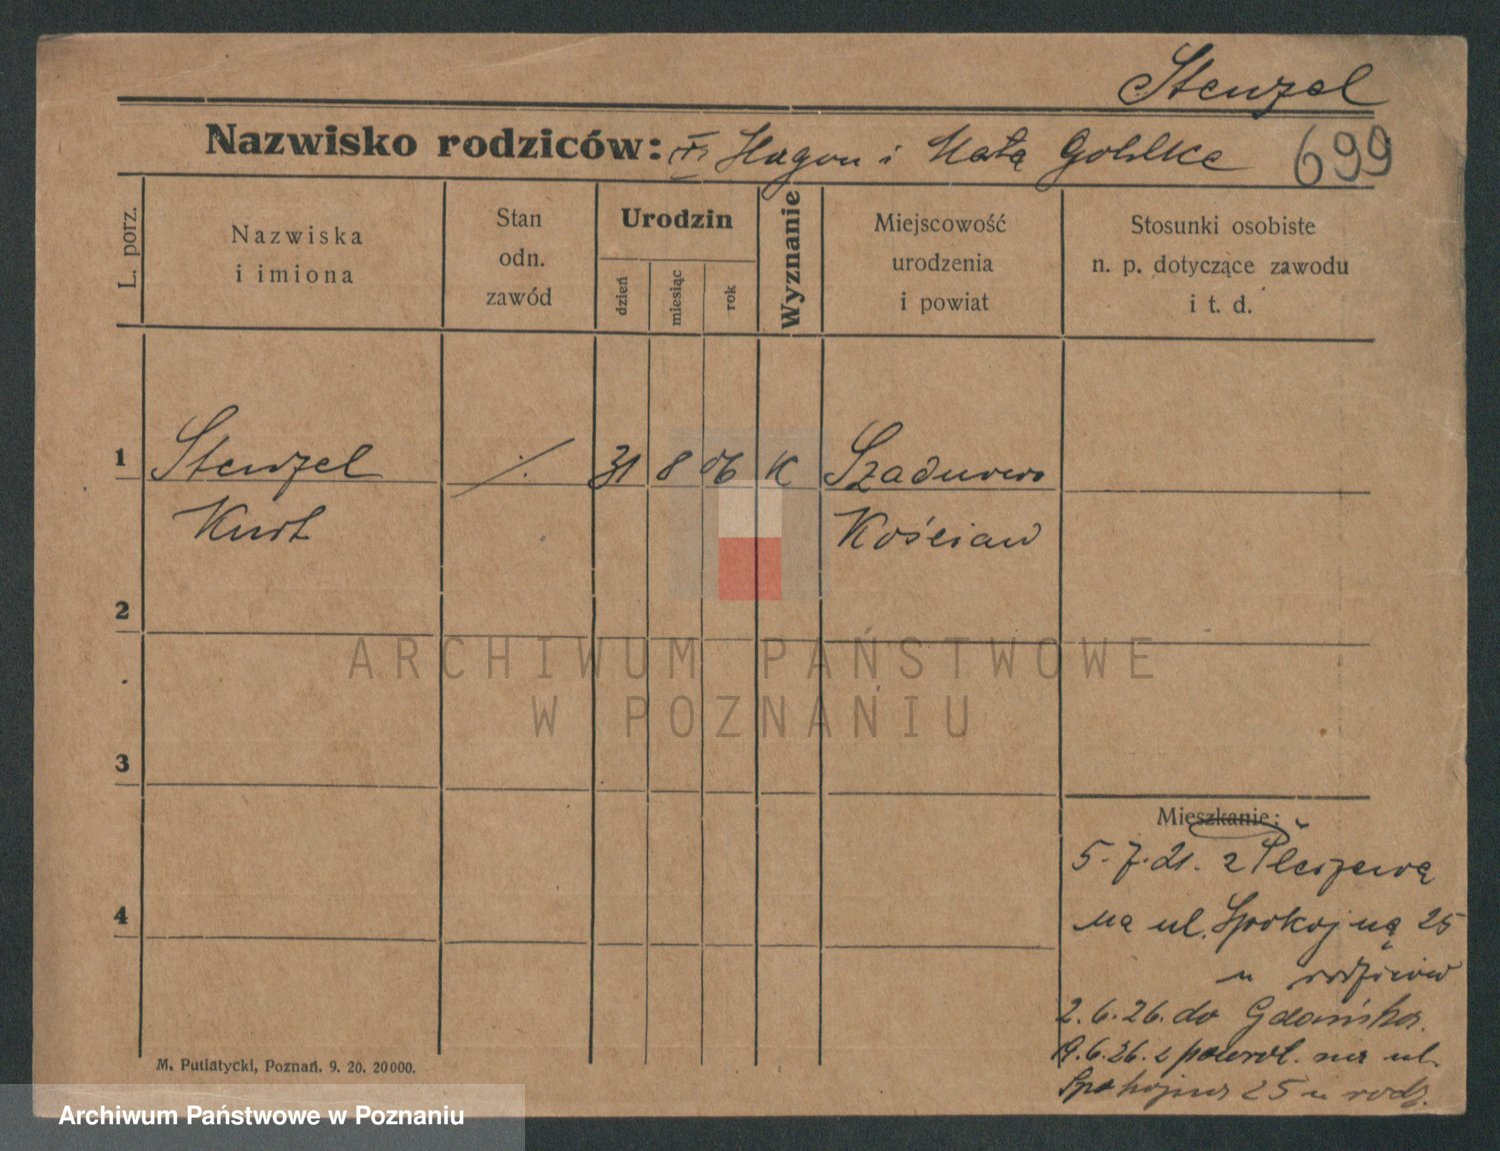 Stenzel
Nazwisko rodziców: Hugon i Gohlke
699
L. porz.
Nazwiska
i imiona
Stan
odn.
zawód
Urodzin
dzień
miesiąc
rok
Wyznanie
Miejscowość
urodzenia
i powiat
Stosunki osobiste
n. p. dotyczące zawodu
i t. d.
1 Stenzel ./. 31 8 06 K
Kurt Kościan
2
ARCHIWUM PAŃSTWOWE
W POZNANIU
3
Mieszkanie:
5.7.21. z Pleszewa
na ul. Spokojną 25
4
u rodziców
2.6.26. do Gdańska.
9.6.26. z powrot. na ul.
Spokojna 25 u rodz.
M. Putiatycki, Poznań. 9. 20. 20000.
Archiwum Państwowe w Poznaniu